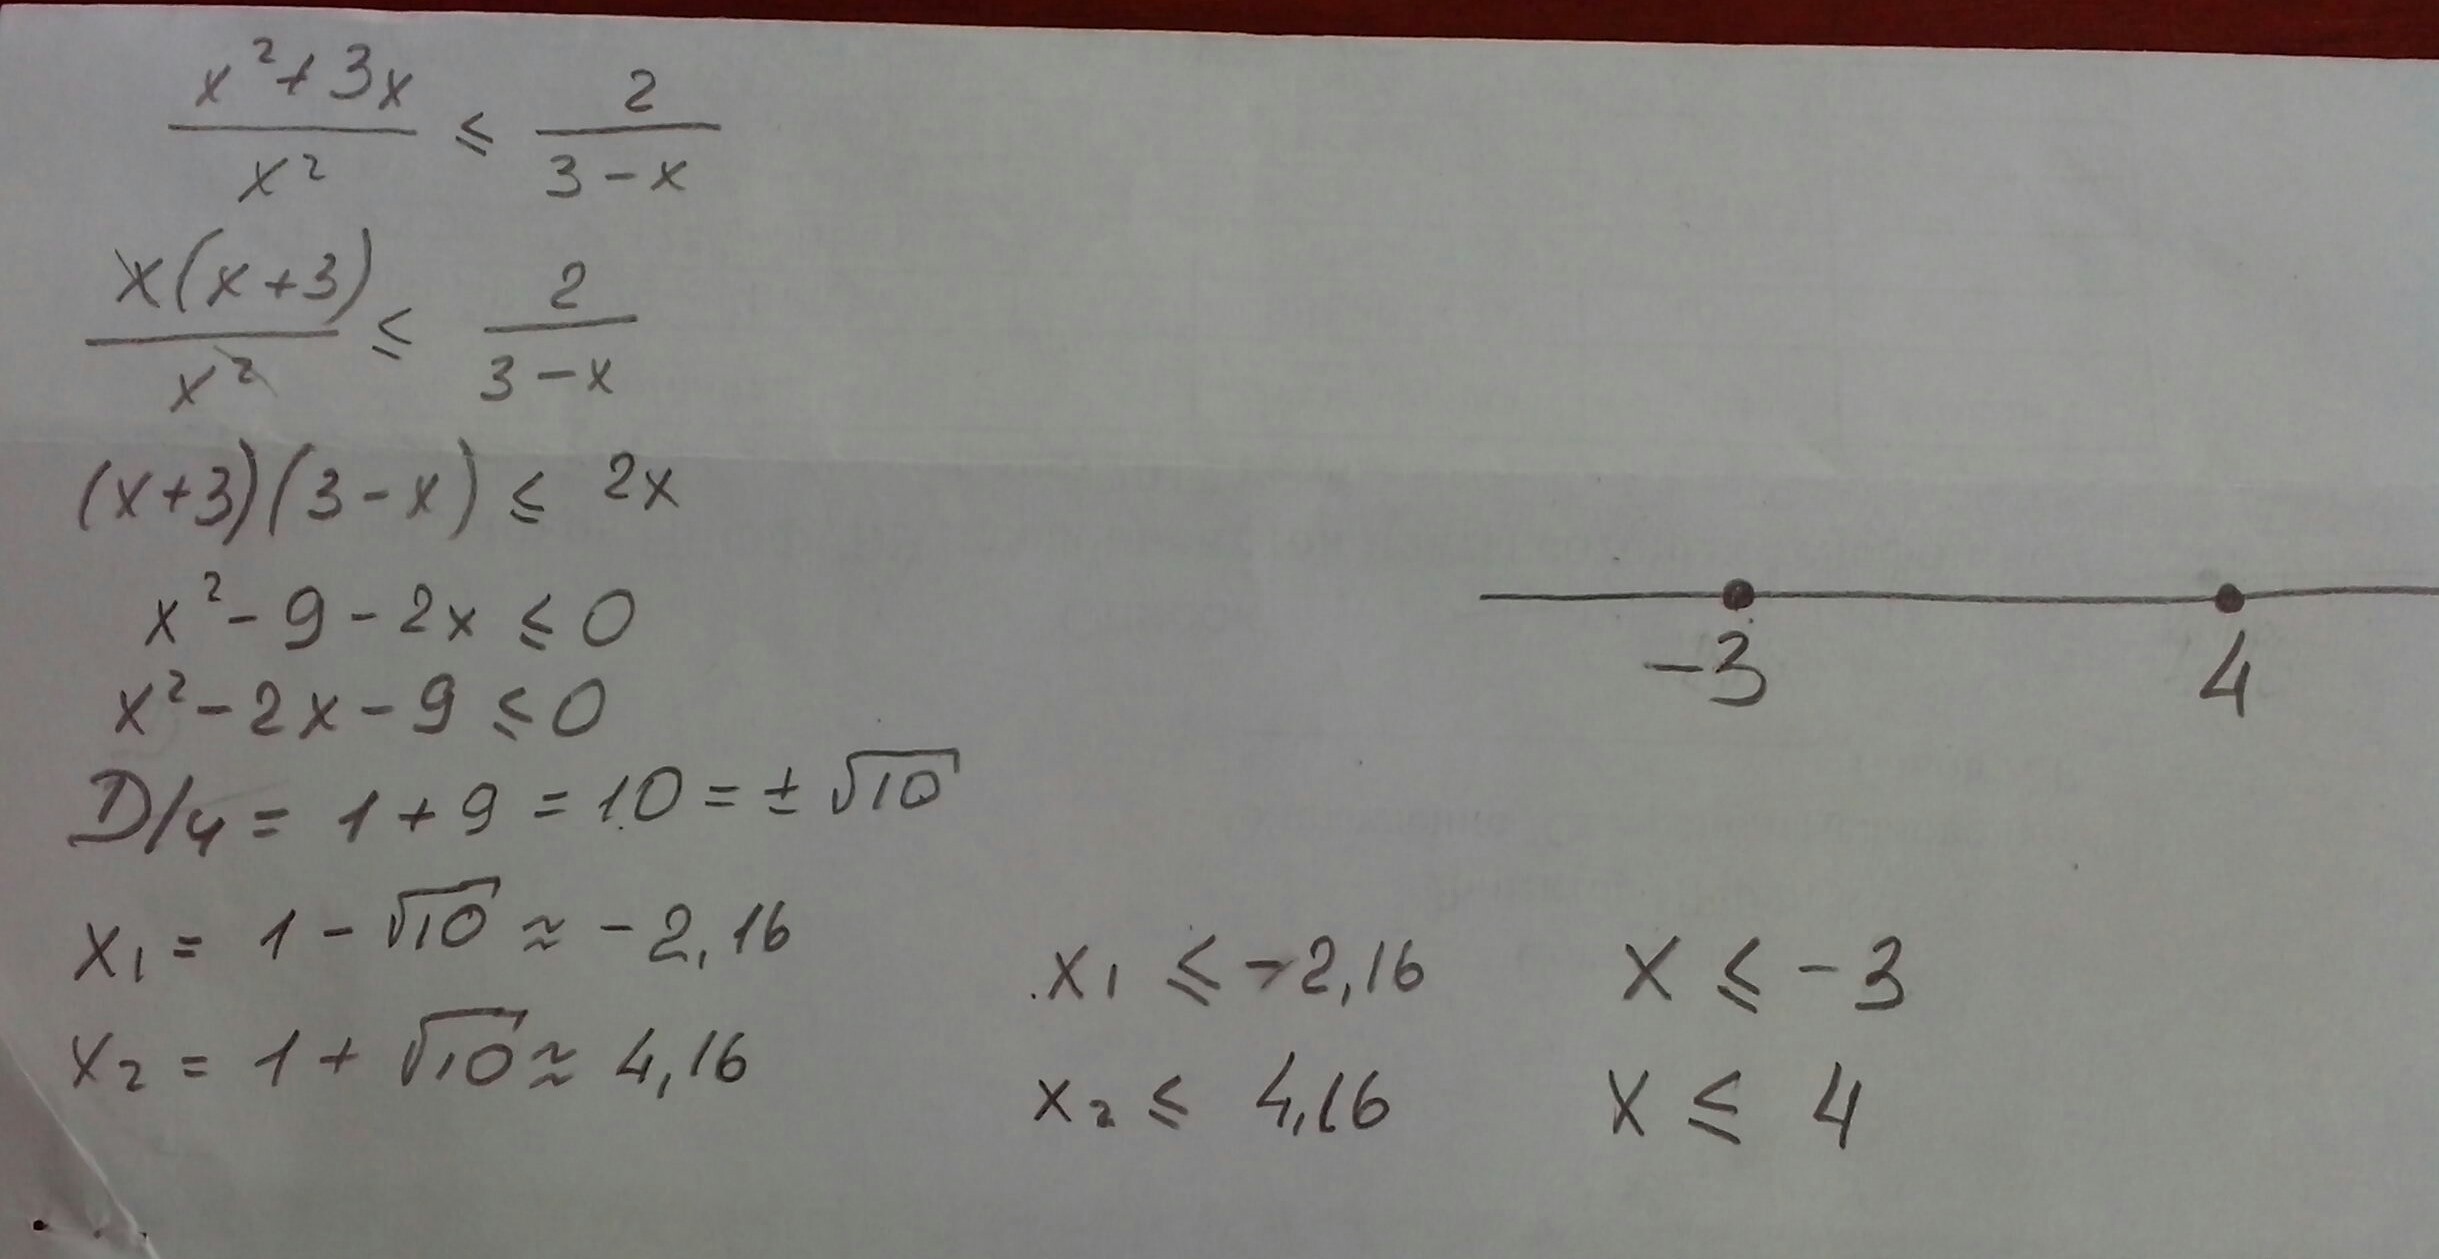 x²+3x / x² ≤ 2 / 3-x
x(x+3) / x² ≤ 2 / 3-x
(x+3)(3-x) ≤ 2x
x²-9-2x ≤ 0
x²-2x-9 ≤ 0
D/4 = 1+9 = 10 = ±√10
x₁ = 1-√10 ≈ -2,16
x₂ = 1+√10 ≈ 4,16
-3 4
x₁ ≤ -2,16 x ≤ -3
x₂ ≤ 4,16 x ≤ 4